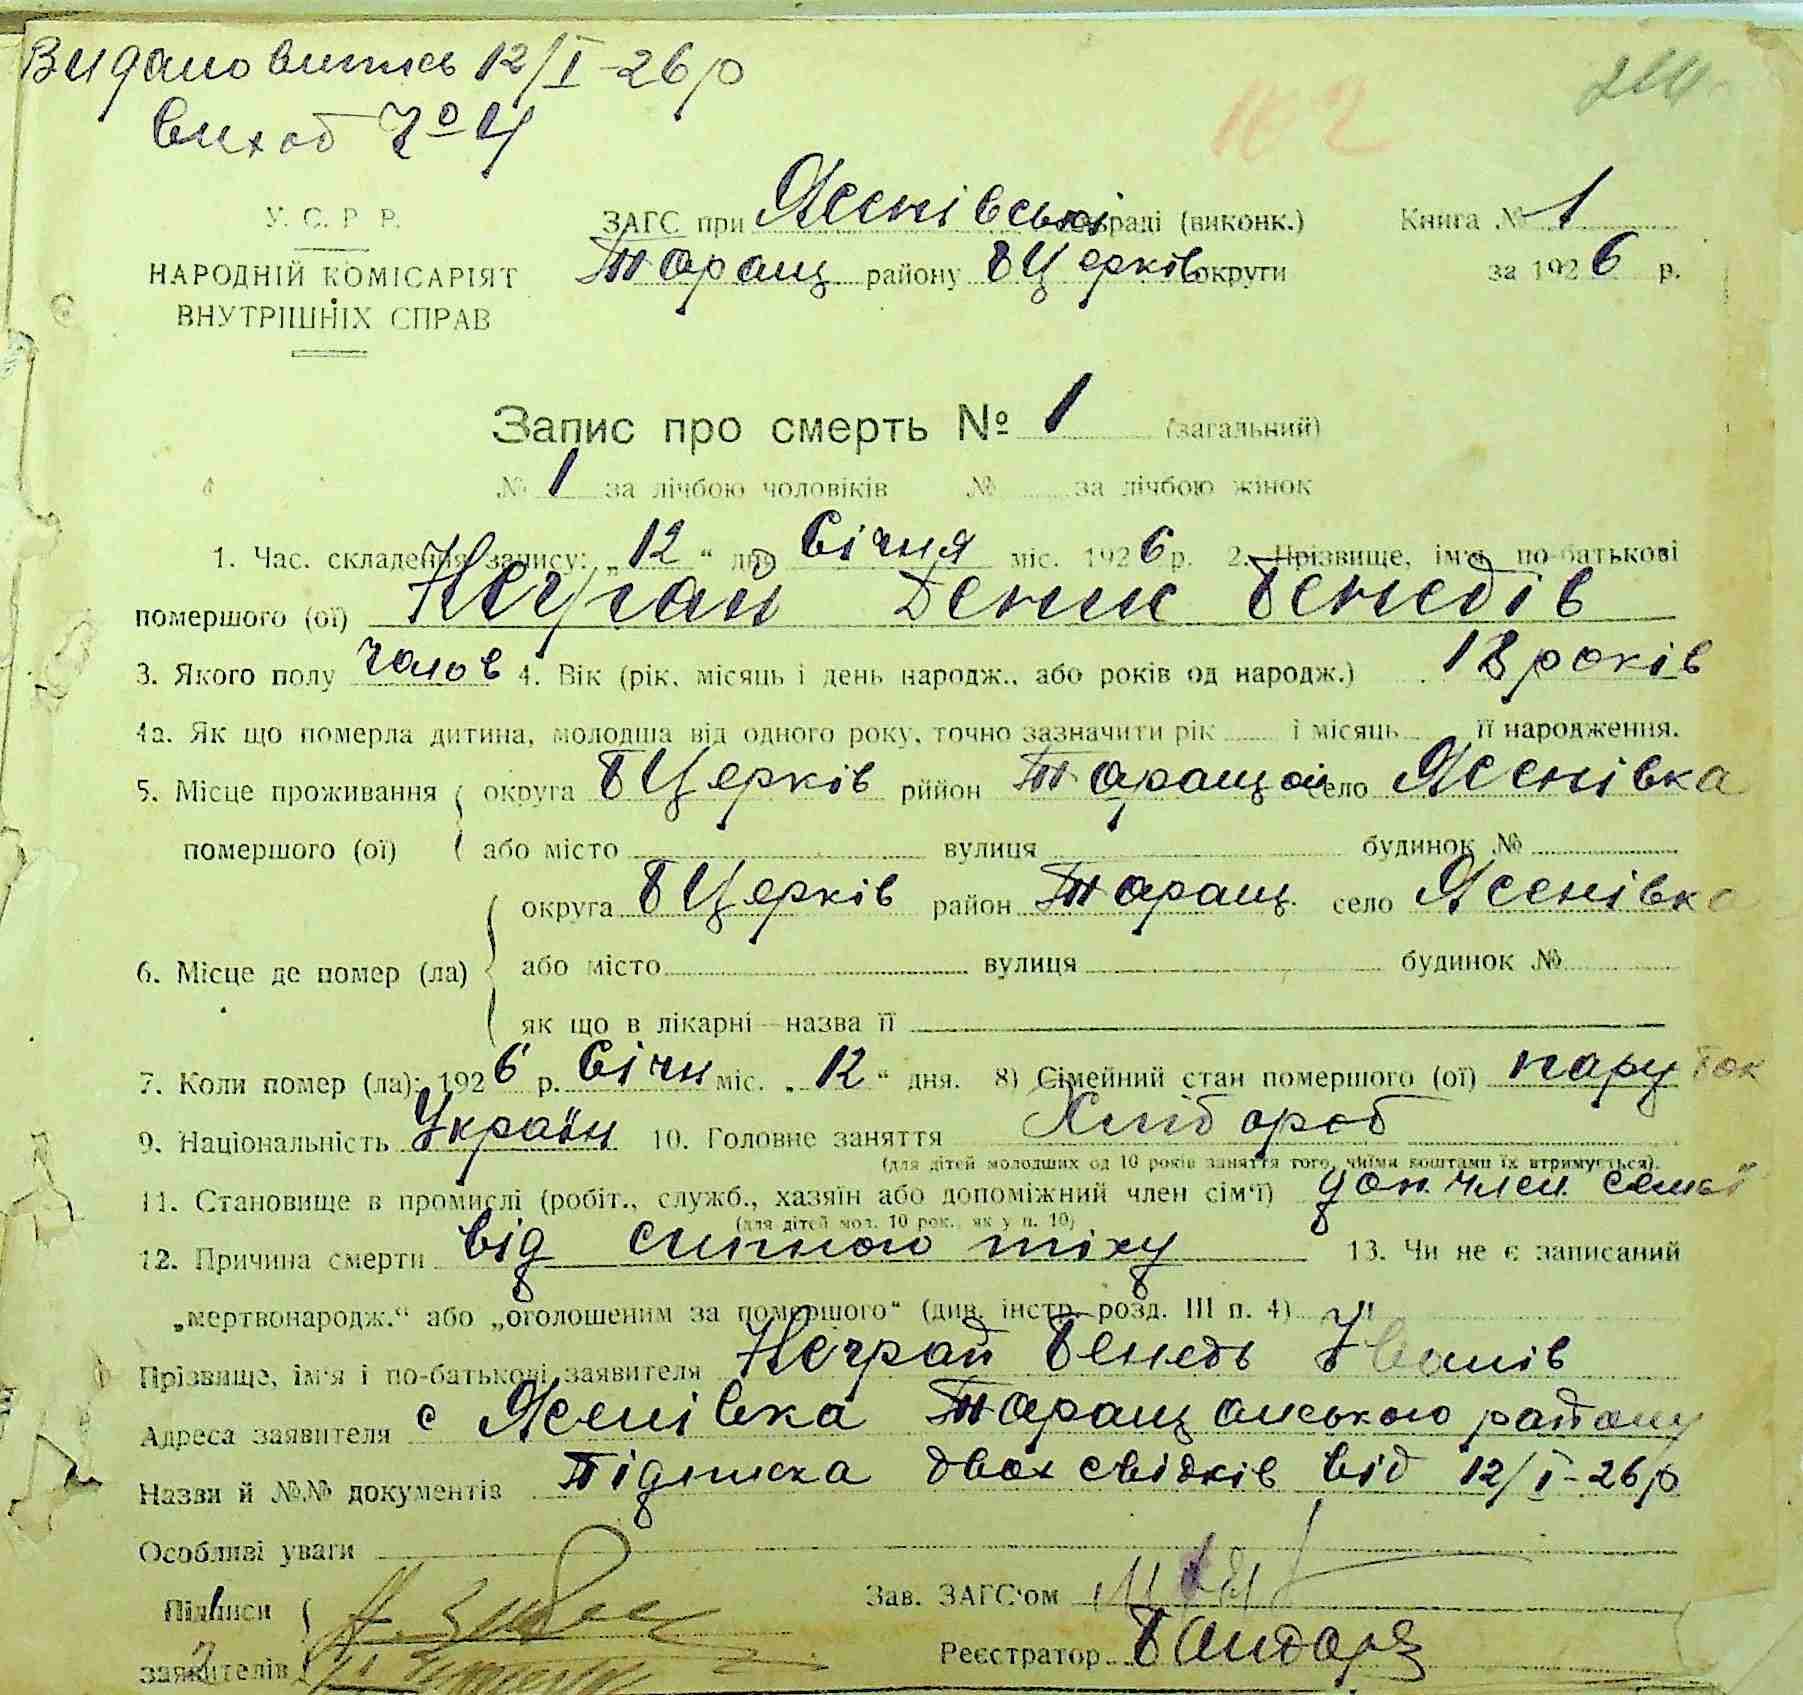 Видано витпсь 12/I-26 р
виход № 4
102
У. С. Р. Р.
НАРОДНІЙ КОМІСАРІЯТ
ВНУТРІШНІХ СПРАВ
ЗАГС при Ясенівські раді (виконк.)
Таращ району БЦерків округи
Книга № 1
за 1926 р.
Запис про смерть № 1 (загальний)
№ 1 за лічбою чоловіків № за лічбою жінок
1. Час. складення запису: „12“ дня Січня міс. 1926 р. 2. Прізвище, ім'я, по-батькові
помершого (ої) Неграй Денис Бенедів
3. Якого полу чолов 4. Вік (рік, місяць і день народж., або років од народж.) 18 років
4а. Як що померла дитина, молодша від одного року, точно зазначити рік і місяць її народження.
5. Місце проживання округа БЦерків рййон Таращан село Ясенівка
помершого (ої) або місто вулиця будинок №
округа БЦерків район Таращ. село Ясенівка
6. Місце де помер (ла) або місто вулиця будинок №
як що в лікарні—назва її
7. Коли помер (ла): 1926 р. Січн міс. „12“ дня. 8) Сімейний стан помершого (ої) паруток
9. Національність Україн 10. Головне заняття Хлібороб
(для дітей молодших од 10 років заняття того, чиїми коштами їх втримується).
11. Становище в промислі (робіт., служб., хазяїн або допоміжний член сім'ї) доп. член семьї
(для дітей мол. 10 рок., як у п. 10)
12. Причина смерти від сипного тіху 13. Чи не є записаний
„мертвонародж.“ або „оголошеним за помершого“ (див. інстр. розд. III п. 4)
Прізвище, ім'я і по-батькові заявителя Неграй Бенедь Іванів
Адреса заявителя с Ясенівка Таращанського району
Назви й №№ документів Підписка двох свідків від 12/I-26 р
Особливі уваги
Підписи
заявителів
Зав. ЗАГС'ом
Реєстратор Бандара